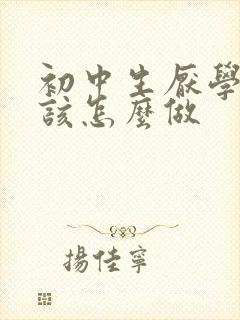 初中生厭學
該怎麼做
揚佳寧